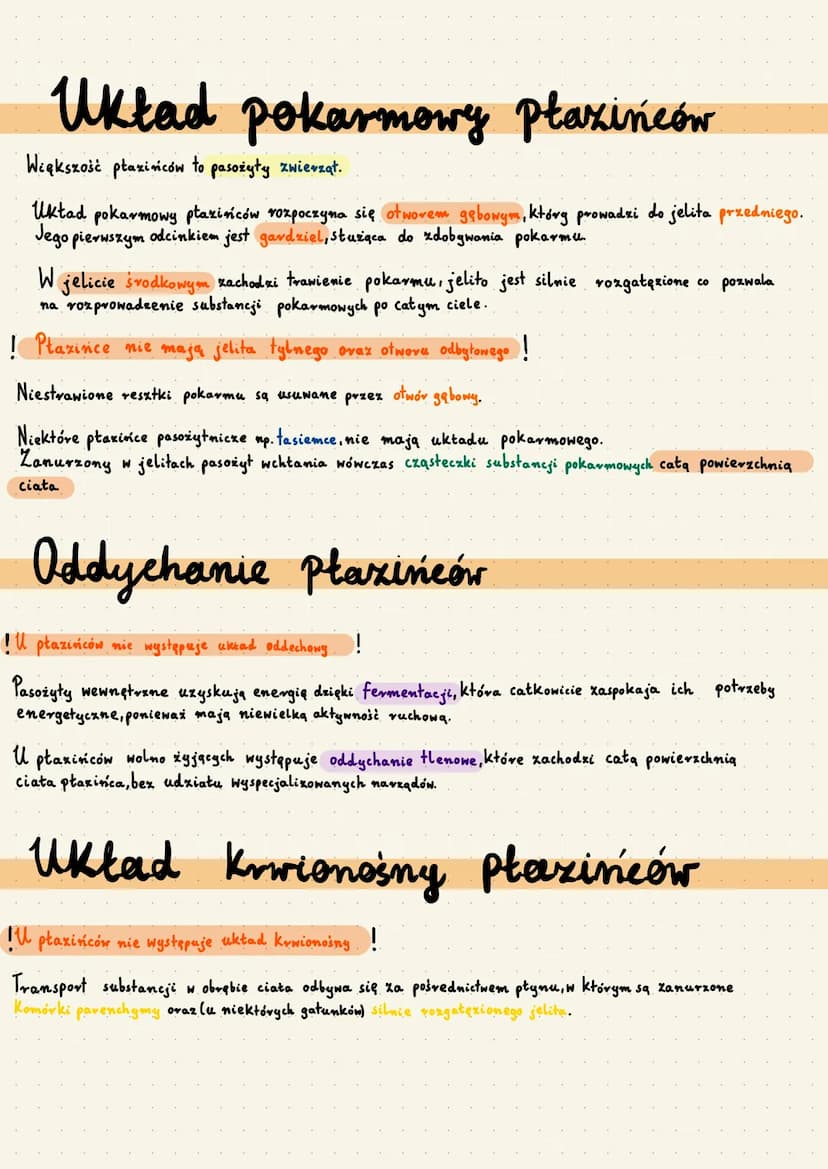 Układ pokarmowy płazińców
Większość płazińców to pasożyty zwierząt.
Układ pokarmowy płazińców rozpoczyna się otworem gębowym, który prowadzi do jelita przedniego.
Jego pierwszym odcinkiem jest gardziel, służąca do zdobywania pokarmu.
W jelicie środkowym zachodzi trawienie pokarmu, jelito jest silnie rozgałęzione co pozwala
na rozprowadzenie substancji pokarmowych po całym ciele.
! Płazińce nie mają jelita tylnego oraz otworu odbytowego !
Niestrawione resztki pokarmu są usuwane przez otwór gębowy.
Niektóre płazińce pasożytnicze np. tasiemce, nie mają układu pokarmowego.
Zanurzony w jelitach pasożyt wchłania wówczas cząsteczki substancji pokarmowych całą powierzchnią
ciała
Oddychanie płazińców
! U płazińców nie występuje układ oddechowy !
Pasożyty wewnętrzne uzyskują energię dzięki fermentacji, która całkowicie zaspokaja ich potrzeby
energetyczne, ponieważ mają niewielką aktywność ruchową.
U płazińców wolno żyjących występuje oddychanie tlenowe, które zachodzi całą powierzchnią
ciała płazińca, bez udziału wyspecjalizowanych narządów.
Układ krwionośny płazińców
! U płazińców nie występuje układ krwionośny !
Transport substancji w obrębie ciała odbywa się za pośrednictwem płynu, w którym są zanurzone
Komórki parenchymy oraz (u niektórych gatunków) silnie rozgałęzionego jelita.